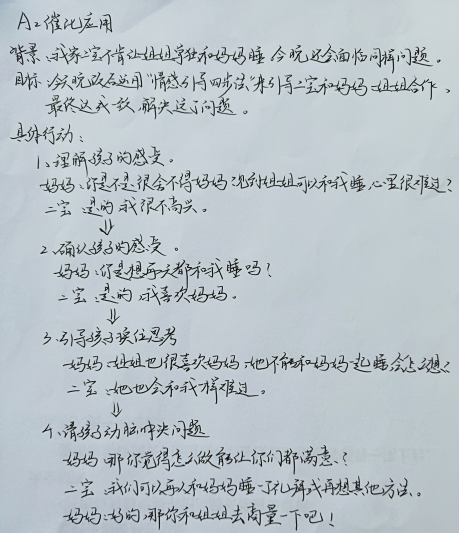 A2催化应用
背景:我家二宝不肯让姐姐单独和妈妈睡,今晚还会面临同样问题。
目标:今天晚饭后运用“情感引导四步法”来引导二宝和妈妈、姐姐合作,
最终达成一致,解决这个问题。
具体行动:
1、理解孩子的感受。
妈妈:你是不是很舍不得妈妈,见到姐姐可以和我睡,心里很难过?
二宝:是的,我很不高兴。
⇓
2、确认孩子的感受。
妈妈:你是想每天都和我睡吗?
二宝:是的,我喜欢妈妈。
⇓
3、引导孩子换位思考
妈妈:姐姐也很喜欢妈妈,她不能和妈妈一起睡会怎么想?
二宝:她也会和我一样难过。
⇓
4、请孩子动脑解决问题
妈妈:那你觉得怎么做能让你们都满意?
二宝:我们可以每人和妈妈睡一个礼拜或再想其他方法。
妈妈:好的,那你和姐姐去商量一下吧!